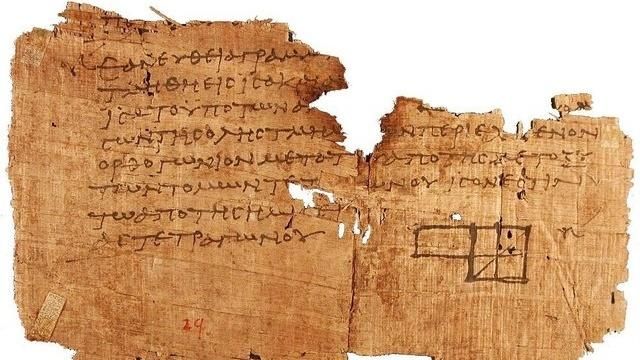 ΕΑΝ ΕΥΘΕΙΑ ΓΡΑΜ
ΤΜΗΘΗ ΕΙϹ ΙϹΑ ΚΑΙ Α
ΙϹΑ ΤΟ ΥΠΟ ΤΩΝ Α
ϹΩΝ ΤΗϹ ΟΛΗϹ ΤΜΗΜ ΩΝ ΠΕΡΙΕΧ ΜΕΝΟΝ
ΟΡΘΟΓΩΝΙΟΝ ΜΕΤΑ Τ Υ ΑΠΟ ΤΗϹ ΜΕΤΟΞΥ
ΤΩΝ ΤΟΜΩΝ ΤΕΤ ΩΝΟΥ ΙϹΟΝ ΕϹΤΙΝ
ΤΩ ΑΠΟ ΤΗϹ ΗΜΙ
ΑϹ ΤΕΤΡΑΓΩΝΟΥ
29